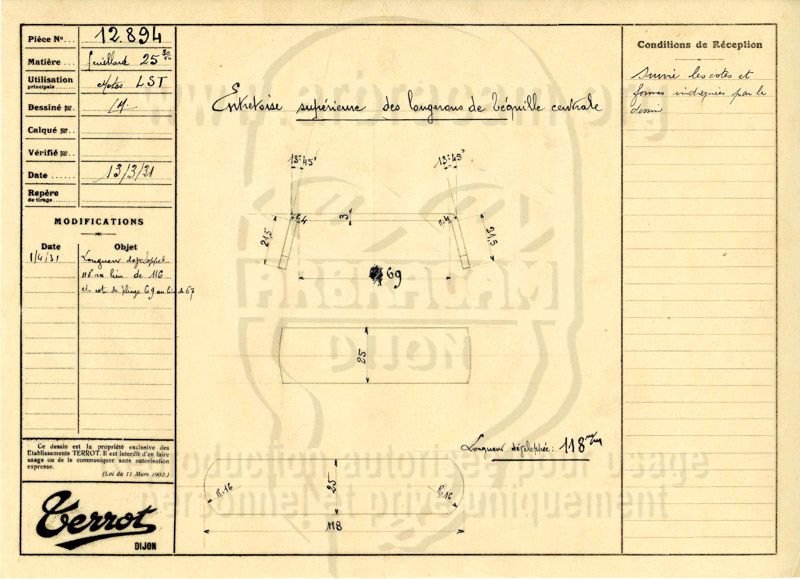 Pièce No... 12.894
Matière... feuillard 25 30/10
Utilisation principale... Motos LST
Dessiné par.
Calqué par..
Vérifié par..
Date ...... 13/3/31
Repère de tirage
MODIFICATIONS
Date Objet
1/4/31 Longueur développée
118 au lieu de 116
et cote de pliage 69 au lieu de 67
Ce dessin est la propriété exclusive des
Etablissements TERROT. Il est interdit d'en faire
usage ou de le communiquer sans autorisation
expresse.
(Loi du 11 Mars 1902.)
Terrot
DIJON
Entretoise supérieure des longerons de béquille centrale
13°45'
13°45'
R.4
3
R.4
21,5
21,5
69
25
Longueur développée: 118 m/m
R.16
25
R.16
118
Conditions de Réception
Suivre les cotes et
formes indiquées par le
dessin
www.arbracam.org
ARBRACAM
DIJON
Reproduction autorisée pour usage
personnel et privé uniquement